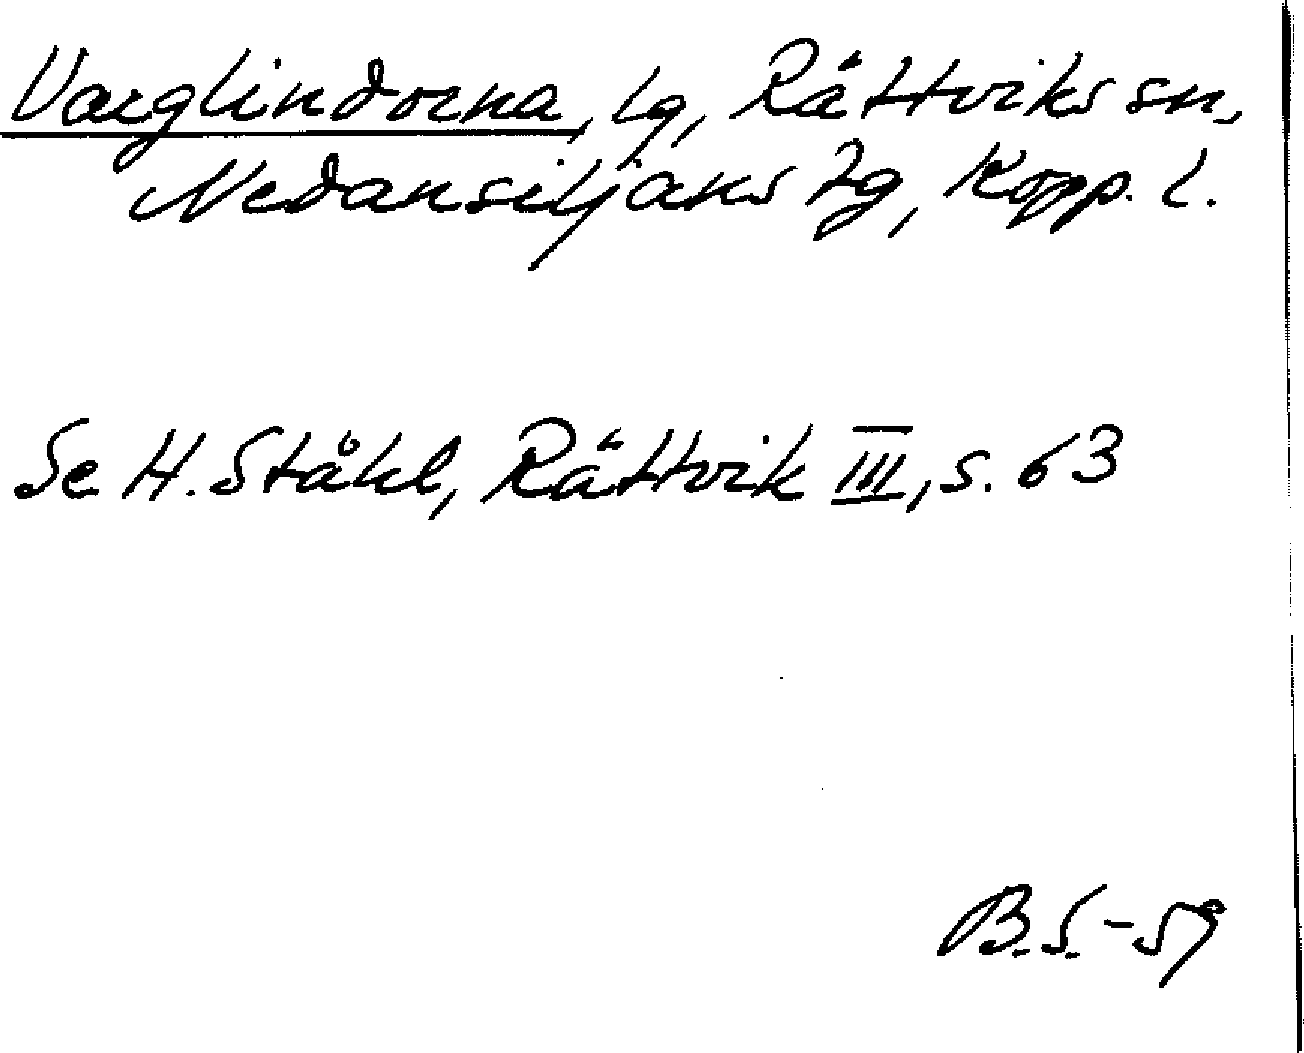 Varglindorna, lg, Rättviks sn,
Nedansiljans tg, Kopp. l.
Se H. Ståhl, Rättvik III, s. 63
B.S.-59